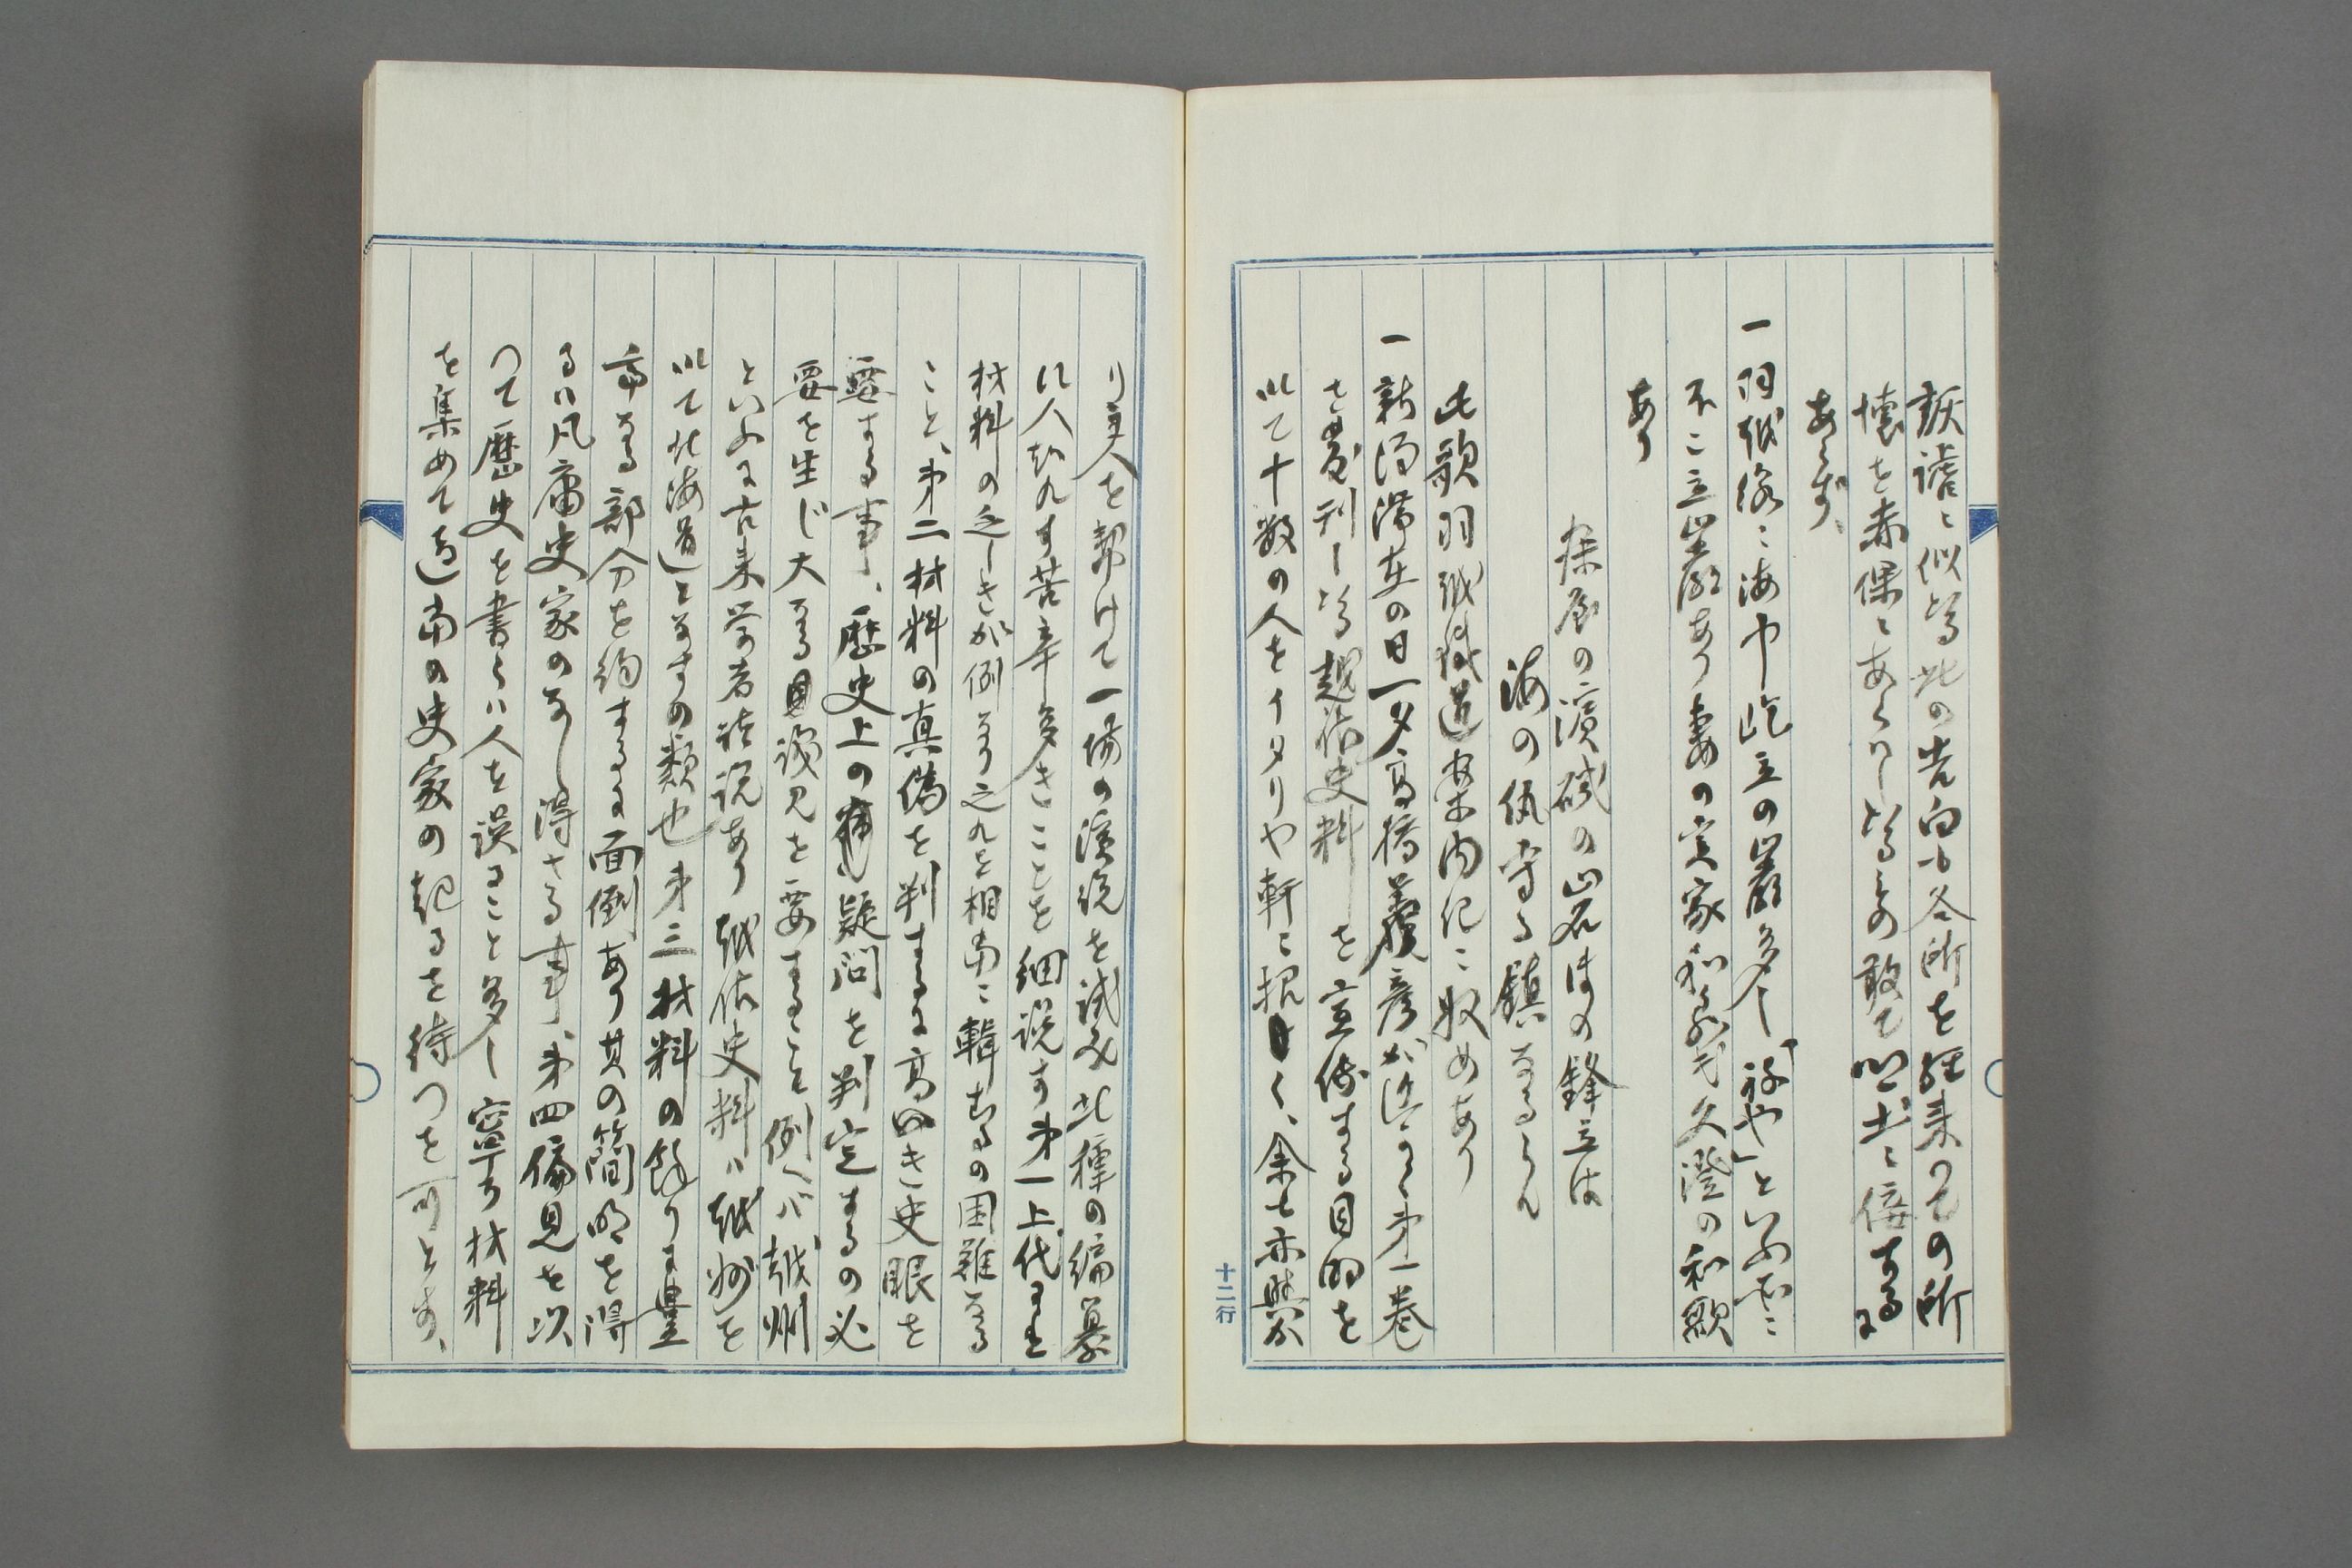 詼謔ニ似たる此の告白も各所を経来つての所
懐を赤裸ニあらハしたるもの敢て坐古ニ倍する
あらず、
一羽越線ニ海中屹立の巌多し「稲や」といふ所ニ
不二立巌あり妻の実家和泉氏久澄の和歌
あり
海の仇守る鎮なるらん
此歌羽越鉄道案内記ニ収めあり
一新潟滞在の日一夕高橋義彦が今度第一巻
を発刊したる越佐史料を宣伝する目的を
以て十数の人をイタリヤ軒ニ招く、余も亦与か
り主人を幇けて一場の演説を試み此種の編纂
に人知れず苦辛多きことを細説す第一上代のこと
材料の乏しきが例なり之れを相当ニ輯むるの困難なる
こと、第二材料の真偽を判するに高き史眼を
要する事、歴史上の疑問を判定するの必
要を生じ大なる識見を要すること例へバ越州
といふに古来学者諸説あり越佐史料ハ越州を
以て北海道となすの類也第三材料の余りに豊
富なる部分を約するに面倒あり其の簡明を得
るハ凡庸史家のなし得さる事、第四偏見を以
つて歴史を書くハ人を誤ること多し寧ろ材料
を集めて適当の史家の起るを待つを可とす、
十二行